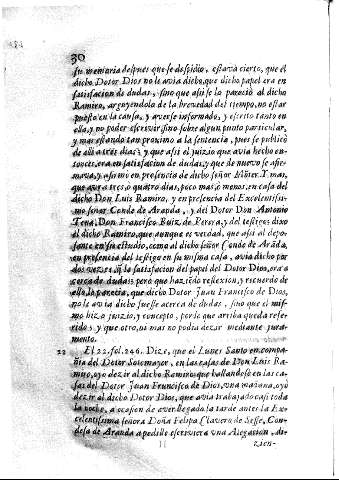 30
su memoria despues que se despidio, estava cierto, que el
dicho Dotor Dios no le avia dicho, que dicho papel era en
satisfacion de dudas, sino que assi se lo pareciò al dicho
Ramiro, arguyendolo de la brevedad del tiempo, no estar
puesto en la causa, y averse informado, y escrito tanto en
ella, y no poder escrivir sino sobre algun punto particular,
y mas estando tan proximo a la sentencia, pues se publicò
de alli a tres dias; y que assi el juizio que avia hecho en-
tonces, era en satisfacion de dudas, y que de nuevo se afir-
mava, y afirmò en presencia de dicho señor Mòxer. Y mas,
que avra tres ò quatro dias, poco mas, ò menos, en casa del
dicho Don Luis Ramiro, y en presencia del Excelentissi-
mo señor Conde de Aranda, y del Dotor Don Antonio
Tena, Don Francisco Ruiz de Perera, y del testigo: dixo
el dicho Ramiro, que aunque es verdad, que assi al depo-
sante en su estudio, como al dicho señor Conde de Aràda,
en presencia del testigo en su misma casa, avia dicho por
dos vezes q̃ la satisfacion del papel del Dotor Dios, era a
cerca de dudas: pero que haziendo reflexion, y recuerdo de
ello, le parecia, que dicho Dotor Juan Francisco de Dios,
no le avia dicho fuesse acerca de dudas, sino que el mis-
mo hizo juizio, y concepto, por lo que arriba queda refe-
rido: y que otro, ni mas no podia dezir mediante jura-
mento.
22 El 22. fol. 246. Dize, que el Lunes Santo en compa-
ñia del Dotor Sotomayor, en las casas de Don Luis Ra-
miro, oyo dezir al dicho Ramiro que hallandose en las ca-
sas del Dotor Juan Francisco de Dios, una mañana, oyò
dezir al dicho Dotor Dios, que avia trabajado casi toda
la noche, a ocasion de aver llegado la tarde antes la Ex-
celentissima señora Doña Felipa Clavero de Sesse, Con-
desa de Aranda a pedille escriviera una Alegacion, di-
zien-